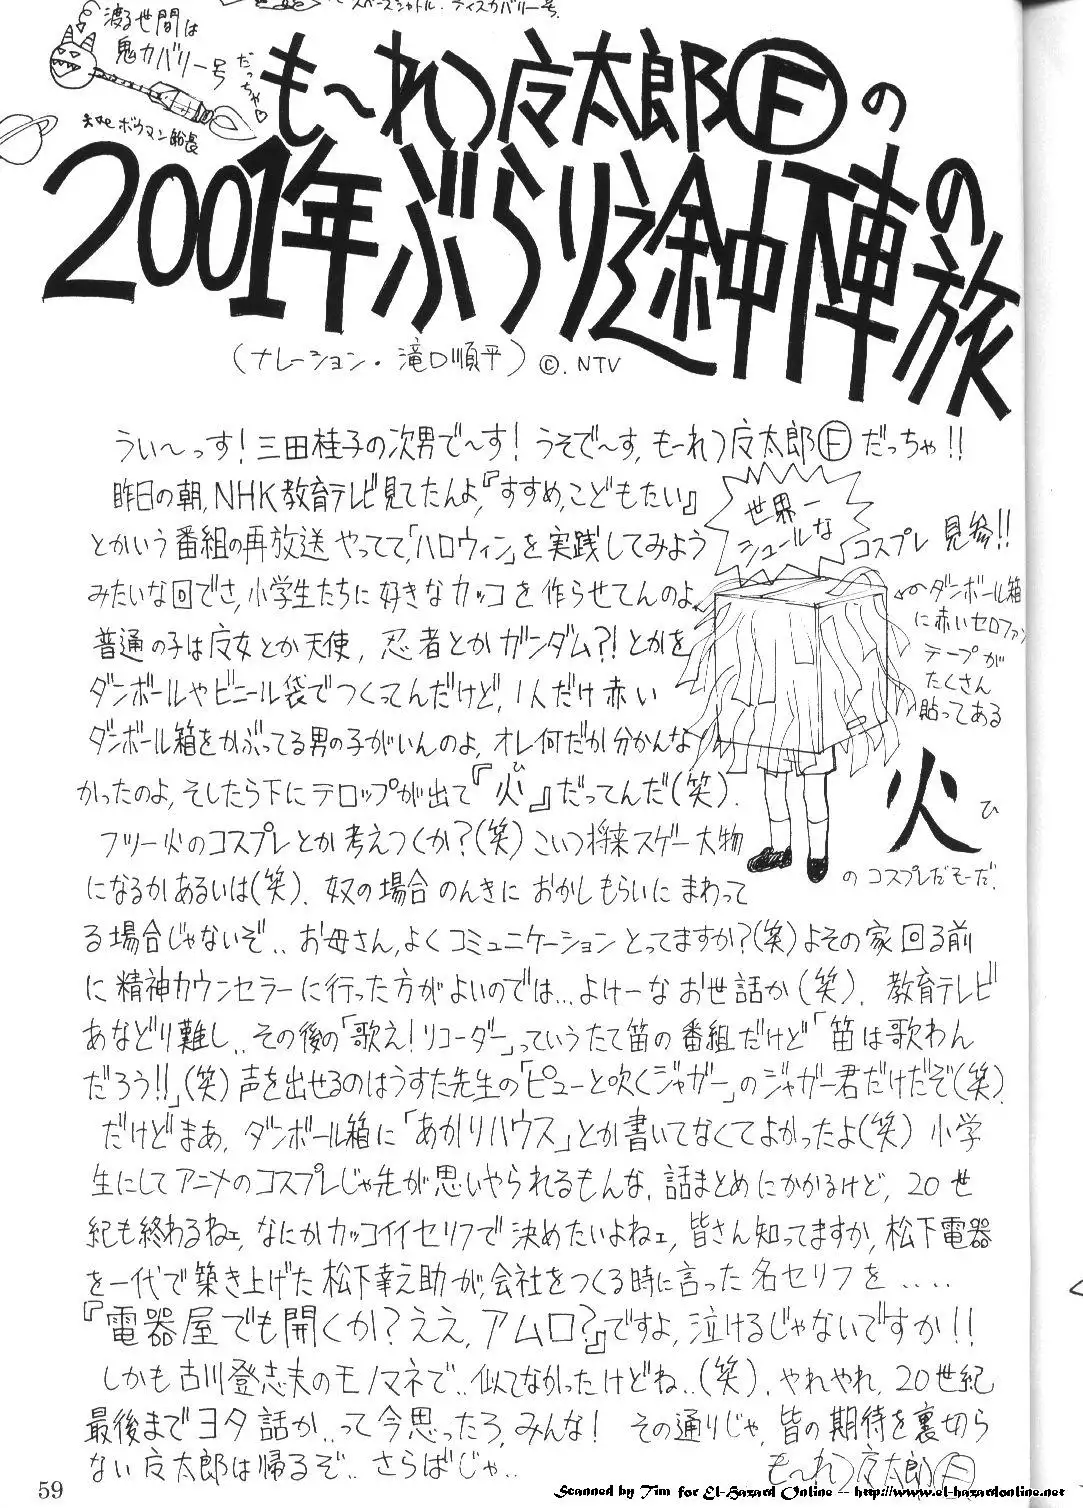 スペースシャトル・ディスカバリー号
渡る世間は
鬼カバリー号
だっちゃ♡
ボウマン船長
も〜れつ应太郎Ⓕの
2001年ぶらり途中下車の旅
(ナレーション・滝口順平)©.NTV
うぃ〜っす!三田桂子の次男で〜す!うそで〜す,も〜れつ应太郎Ⓕだっちゃ!!
昨日の朝,NHK教育テレビ見てたんよ,『すすめ,こどもたい』
とかいう番組の再放送やってて,「ハロウィン」を実践してみよう
みたいな回でさ,小学生たちに好きなカッコを作らせてんのよ,
普通の子は应女とか天使,忍者とかガンダム?!とかを
ダンボールやビニール袋でつくってんだけど,1人だけ赤い
ダンボール箱をかぶってる男の子がいんのよ,オレ何だか分かんな
かったのよ,そしたら下にテロップが出て『火』だってんだ(笑).
ひ
フツー火のコスプレとか考えつくか?(笑)こいつ将来スゲー大物
になるかあるいは(笑).奴の場合のんきにおかしもらいにまわって
る場合じゃないぞ..お母さん,よくコミュニケーションとってますか?(笑)よその家回る前
に精神カウンセラーに行った方がよいのでは...よけーなお世話か(笑).教育テレビ
あなどり難し..その後の「歌え!リコーダー」っていうたて笛の番組だけど「笛は歌わん
だろう!!」(笑)声を出せるのはうすた先生の「ピューと吹くジャガー」のジャガー君だけだぞ(笑).
だけどまあ,ダンボール箱に「あかりハウス」とか書いてなくてよかったよ(笑)小学
生にしてアニメのコスプレじゃ先が思いやられるもんな.話まとめにかかるけど,20世
紀も終わるねェ,なにかカッコイイセリフで決めたいよねェ,皆さん知ってますか,松下電器
を一代で築き上げた松下幸之助が,会社をつくる時に言った名セリフを....
『電器屋でも開くか?ええ,アムロ?』ですよ,泣けるじゃないですか!!
しかも古川登志夫のモノマネで..似てなかったけどね..(笑).やれやれ,20世紀
最後までヨタ話か..って今思ったろ,みんな! その通りじゃ,皆の期待を裏切ら
ない应太郎は帰るぞ..さらばじゃ..
も〜れつ应太郎Ⓕ
世界一
シュールな
コスプレ見参!!
←ダンボール箱
に赤いセロファン
テープが
たくさん
貼ってある
火
ひ
のコスプレだそーだ.
59
Scanned by Tim for El-Hazard Online -- http://www.el-hazardonline.net